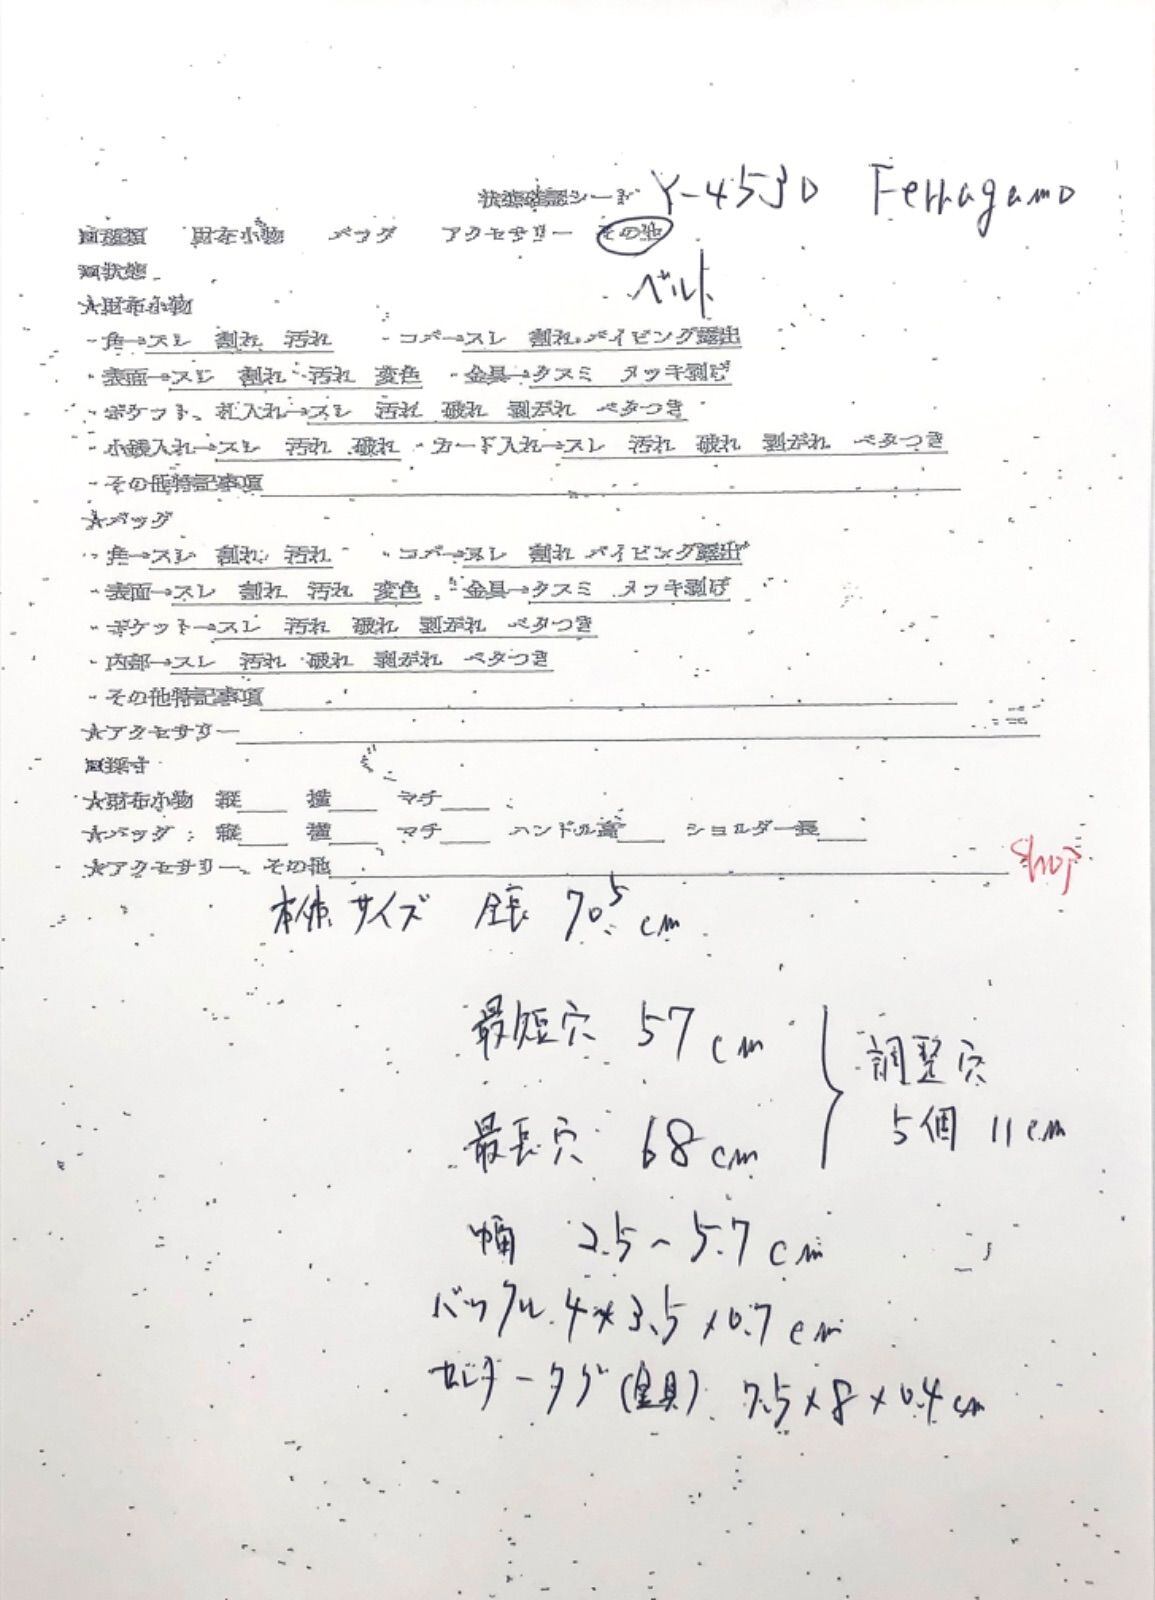 状態確認シート Y-4530 Ferragamo
■種類 財布小物 バッグ アクセサリー その他
■状態 ベルト
★財布小物
・角→スレ 割れ 汚れ ・コバ→スレ 割れ パイピング露出
・表面→スレ 割れ 汚れ 変色 ・金具→クスミ メッキ剥げ
・ポケット、札入れ→スレ 汚れ 破れ 剥がれ ベタつき
・小銭入れ→スレ 汚れ 破れ ・カード入れ→スレ 汚れ 破れ 剥がれ ベタつき
・その他特記事項
★バッグ
・角→スレ 割れ 汚れ ・コバ→スレ 割れ パイピング露出
・表面→スレ 割れ 汚れ 変色 ・金具→クスミ メッキ剥げ
・ポケット→スレ 汚れ 破れ 剥がれ ベタつき
・内部→スレ 汚れ 破れ 剥がれ ベタつき
・その他特記事項
★アクセサリー
■採寸
★財布小物 縦 横 マチ
★バッグ 縦 横 マチ ハンドル高 ショルダー長
★アクセサリー、その他
shop
本体サイズ 全長 70.5cm
最短穴 57cm
最長穴 68cm
調整穴
5個 11cm
幅 2.5~5.7cm
バックル 4×3.5×0.7cm
センタータグ(金具) 7.5×8×0.4cm